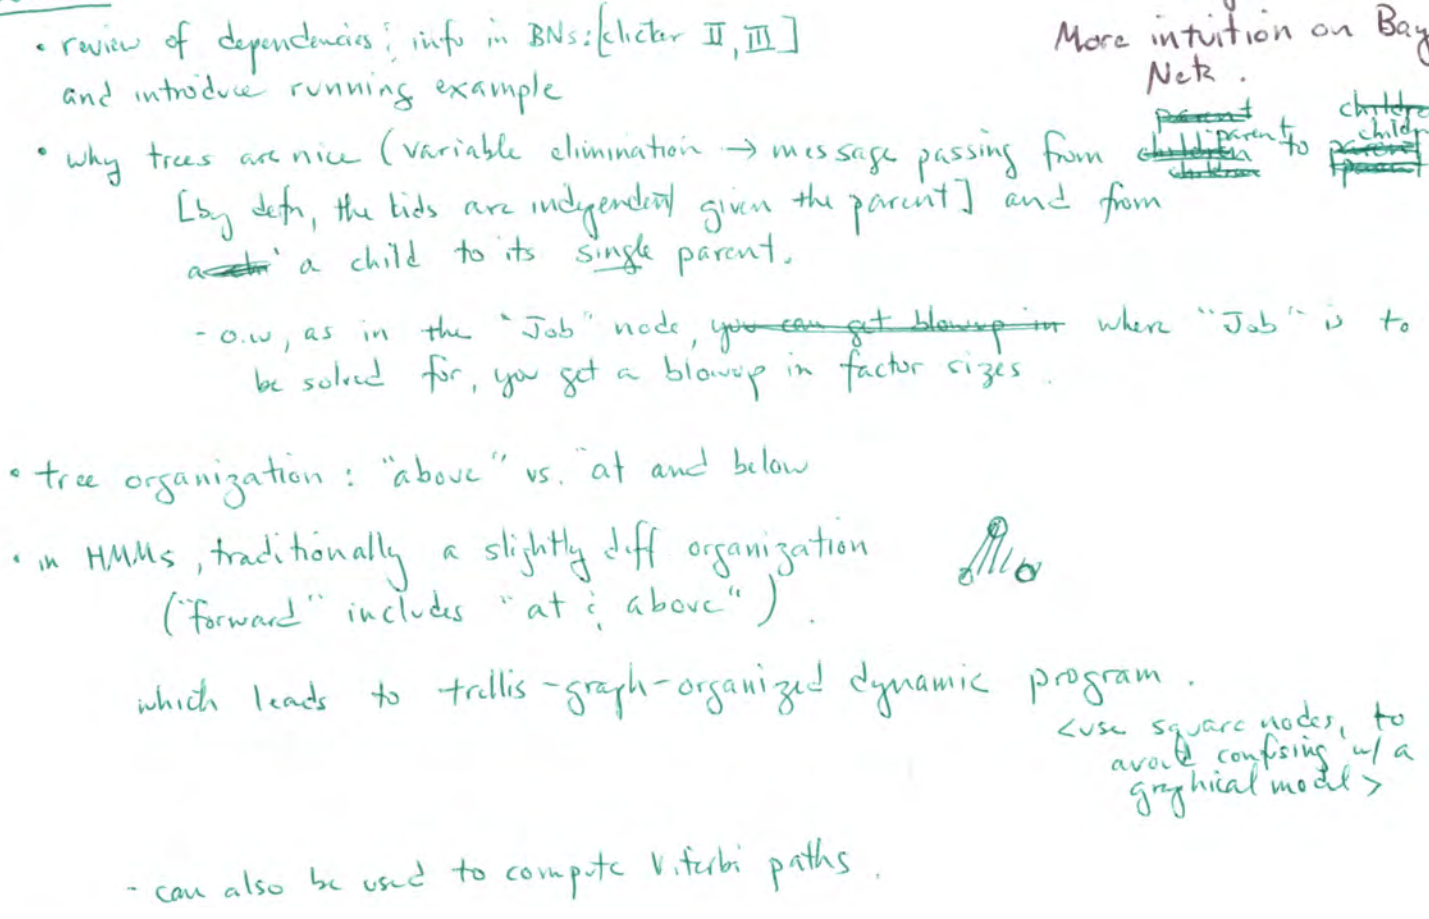 • review of dependencies & info in BNs: [clicker II, III]
and introduce running example
More intuition on Bay
Nets.
• why trees are nice (variable elimination → message passing from parent to child
[by defn, the kids are independent given the parent] and from
a child to its single parent.
- o.w, as in the "Job" node, you can get blowup in where "Job" is to
be solved for, you get a blowup in factor sizes.
• tree organization: "above" vs. "at and below
• in HMMs, traditionally a slightly diff organization
("forward" includes "at & above").
which leads to trellis-graph-organized dynamic program.
<use square nodes, to
avoid confusing w/ a
graphical model>
- can also be used to compute Viterbi paths.